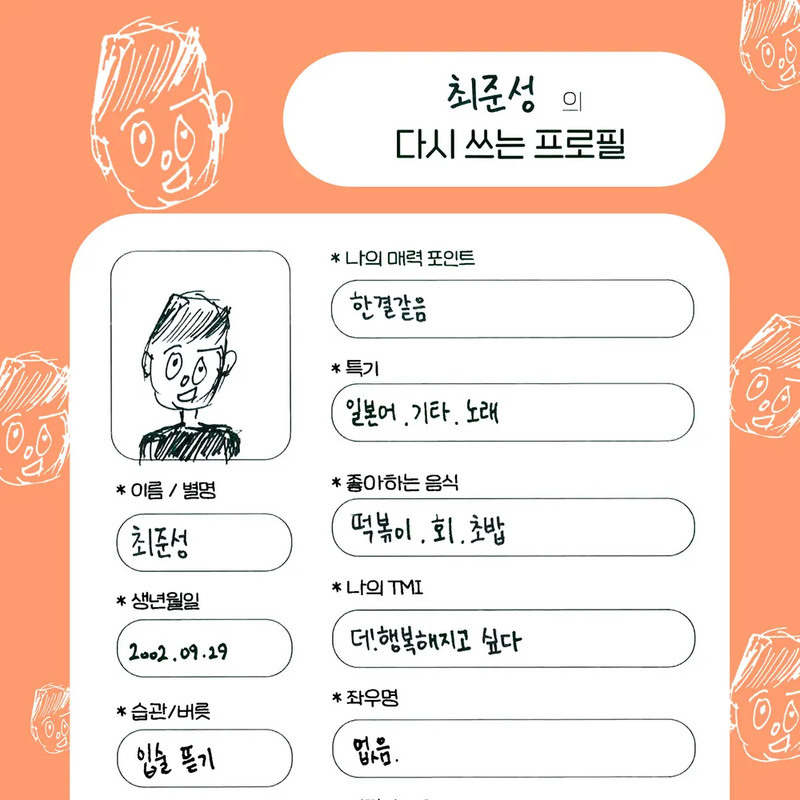 최준성 의
다시 쓰는 프로필
* 이름 / 별명
최준성
* 생년월일
2002.09.29
* 습관/버릇
입술 뜯기
* 나의 매력 포인트
한결같음
* 특기
일본어.기타.노래
* 좋아하는 음식
떡볶이.회.초밥
* 나의 TMI
더!행복해지고 싶다
* 좌우명
없음.